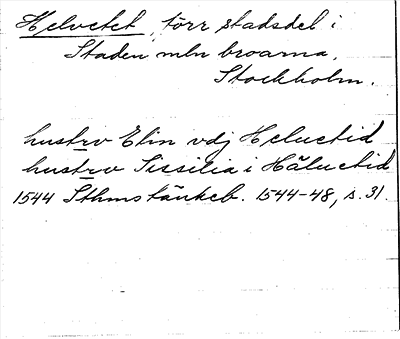 Helvetet, förr stadsdel i
Staden mln broarna,
Stockholm.
hustrv Elin vdj Heluetid
hustrv Sissilia i Häluetid
1544 Sthms tänkeb. 1544-48, s. 31.